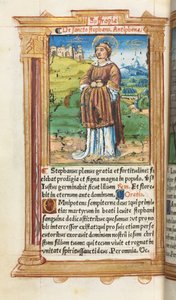 De sancto stephano. Antiphona.
Stephanus plenus gratia et fortitudine fa
ciebat prodigia et signa magna in populo.
Justus germinabit sicut lilium Et flore
bit in eternum ante dominum. Oratio
Omnipotens sempiterne deus qui primi
tias martyrum in beati levite stephani
sanguine dedicasti tribue quesumus ut pro no
bis intercessor existat qui pro suis etiam perse
cutoribus exoravit dominum nostrum iesum chri
stum filium tuum qui tecum vivit et regnat in
unitate spiritussancti deus Per omnia.